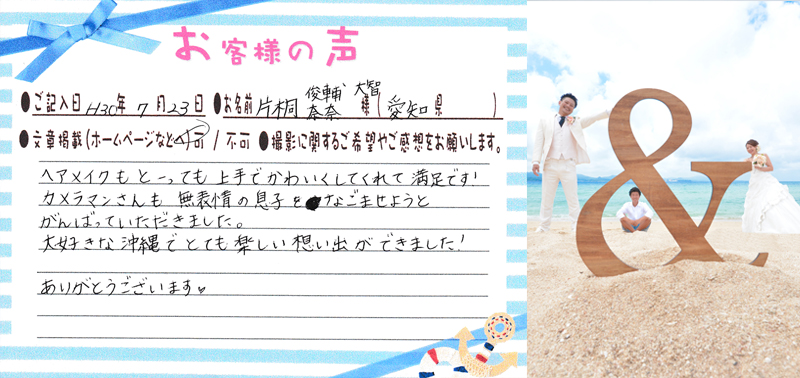 お客様の声
●ご記入日 H30年 7月23日 ●お名前 片桐 俊輔 大智 奈奈 様(愛知県 )
●文章掲載(ホームページなど)可 / 不可 ●撮影に関するご希望やご感想をお願いします。
ヘアメイクもとーっても上手でかわいくしてくれて満足です!
カメラマンさんも無表情の息子をなごませようと
がんばっていただきました。
大好きな沖縄でとても楽しい想い出ができました!
ありがとうございます♥
&